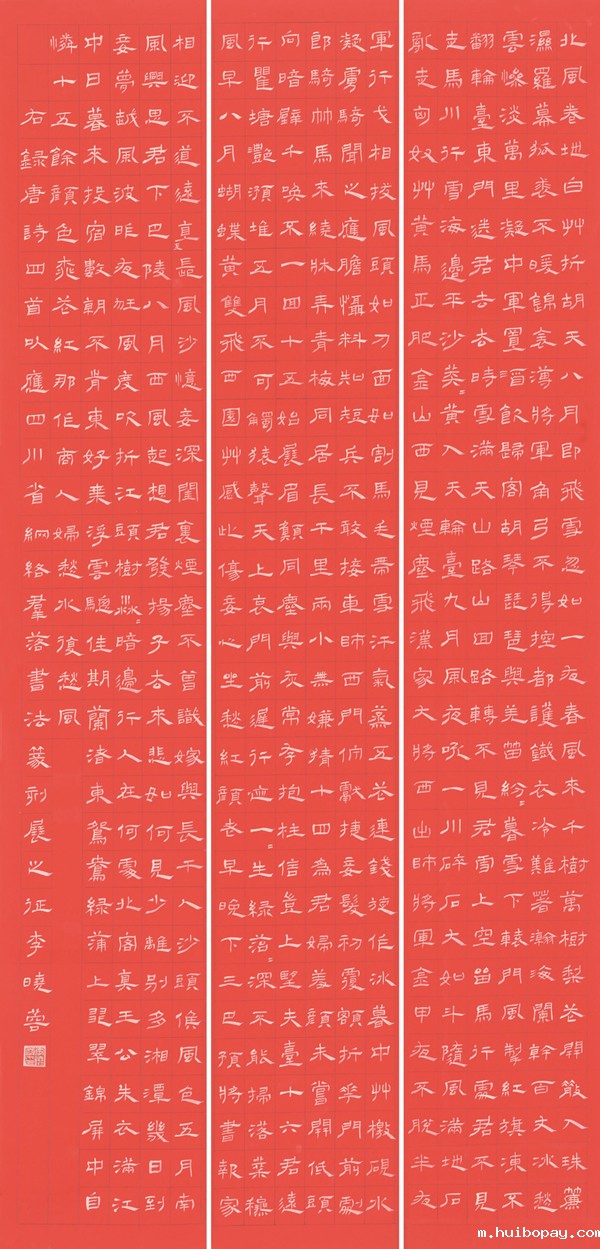 北風卷地白艸折胡天八月即飛雪忽如一夜春風來千樹萬樹梨花開散入珠簾
濕羅幕狐裘不暖錦衾薄將軍角弓不得控都護鐵衣冷難著瀚海闌幹百丈冰愁
雲慘淡萬里凝中軍置酒飲歸客胡琴琵琶與羌笛紛=暮雪下轅門風掣紅旗凍不
翻輪臺東門送君去去時雪滿天山路山回路轉不見君雪上空留馬行處君不見
走馬川行雪海邊平沙莽=黃入天輪臺九月風夜吼一川碎石大如斗隨風滿地石
亂走匈奴艸黃馬正肥金山西見煙塵飛漢家大將西出師將軍金甲夜不脫半夜
軍行戈相撥風頭如刀面如割馬毛帶雪汗氣蒸五花連錢旋作冰暮中艸檄硯水
凝虜騎聞之應膽懾料知短兵不敢接車師西門佇獻捷妾髮初覆額折華門前劇
郎騎竹馬來繞牀弄青梅同居長干里兩小無嫌猜十四為君婦羞顏未嘗開低頭
向暗壁千喚不一回十五始展眉願同塵與灰常存抱柱信豈上望夫臺十六君遠
行瞿塘灩澦堆五月不可觸猿聲天上哀門前遲行跡一=生綠苔=深不能掃落葉秋
風早八月蝴蝶黃雙飛西園艸感此傷妾心坐愁紅顏老早晚下三巴預將書報家
相迎不道遠直=長風沙憶妾深閨裏煙塵不曾識嫁與長干人沙頭候風色五月南
風興思君下巴陵八月西風起想君發揚子去來悲如何見少離別多湘潭幾日到
妾夢越風波昨夜狂風度吹折江頭樹淼=暗邊行人在何處北客真王公朱衣滿江
中日暮來投宿數朝不肯東好乘浮雲驄佳期蘭渚東鴛鴦綠蒲上翡翠錦屏中自
憐十五餘顏色桃花紅那作商人婦愁水復愁風
右錄唐詩四首以應四川省網絡羣落書法篆刻展之征李曉蓉
m.huibopay.com